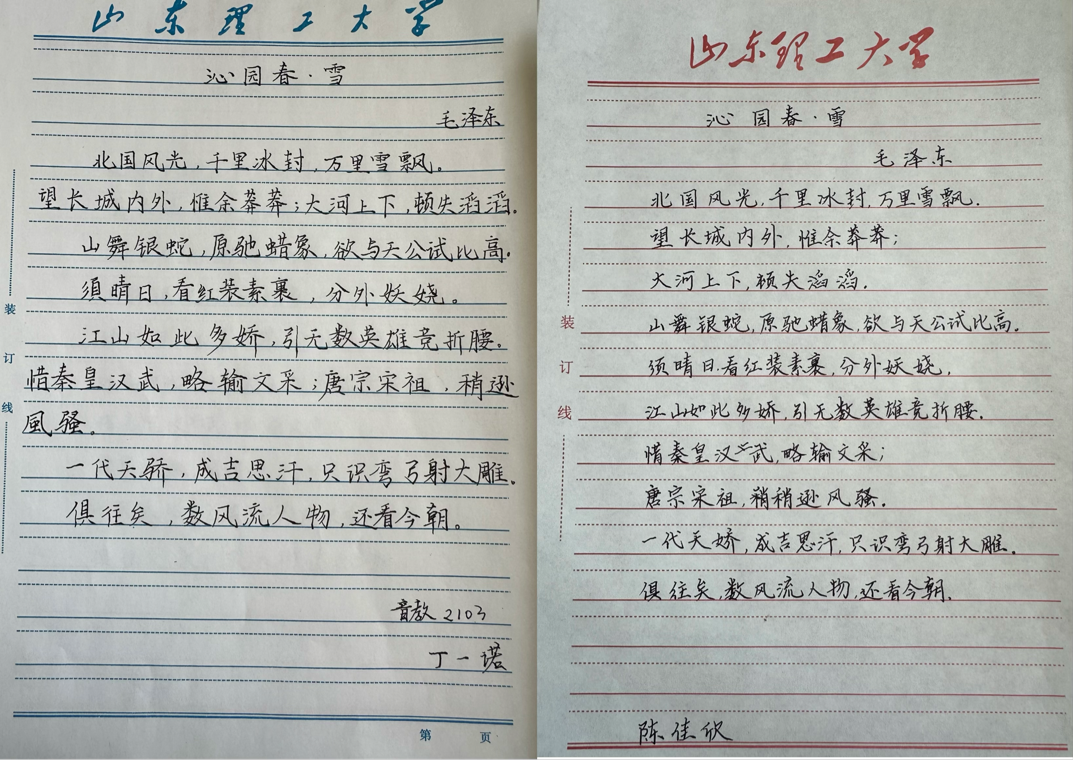 山东理工大学
沁园春·雪
毛泽东
北国风光，千里冰封，万里雪飘。
望长城内外，惟余莽莽；大河上下，顿失滔滔。
山舞银蛇，原驰蜡象，欲与天公试比高。
须晴日，看红装素裹，分外妖娆。
江山如此多娇，引无数英雄竞折腰。
惜秦皇汉武，略输文采；唐宗宋祖，稍逊
風骚。
一代天骄，成吉思汗，只识弯弓射大雕。
俱往矣，数风流人物，还看今朝。
音教2103
丁一塔
装
订
线
第 页
山东理工大学
沁园春·雪
毛泽东
北国风光，千里冰封，万里雪飘．
望长城内外，惟余莽莽；
大河上下，顿失滔滔．
山舞银蛇，原驰蜡象，欲与天公试比高．
须晴日．看红装素裹，分外妖娆．
江山如此多娇，引无数英雄竞折腰．
惜秦皇汉武，略输文采；
唐宗宋祖，稍稍逊风骚．
一代天娇，成吉思汗，只识弯弓射大雕．
俱往矣，数风流人物，还看今朝．
陈佳欣
装
订
线